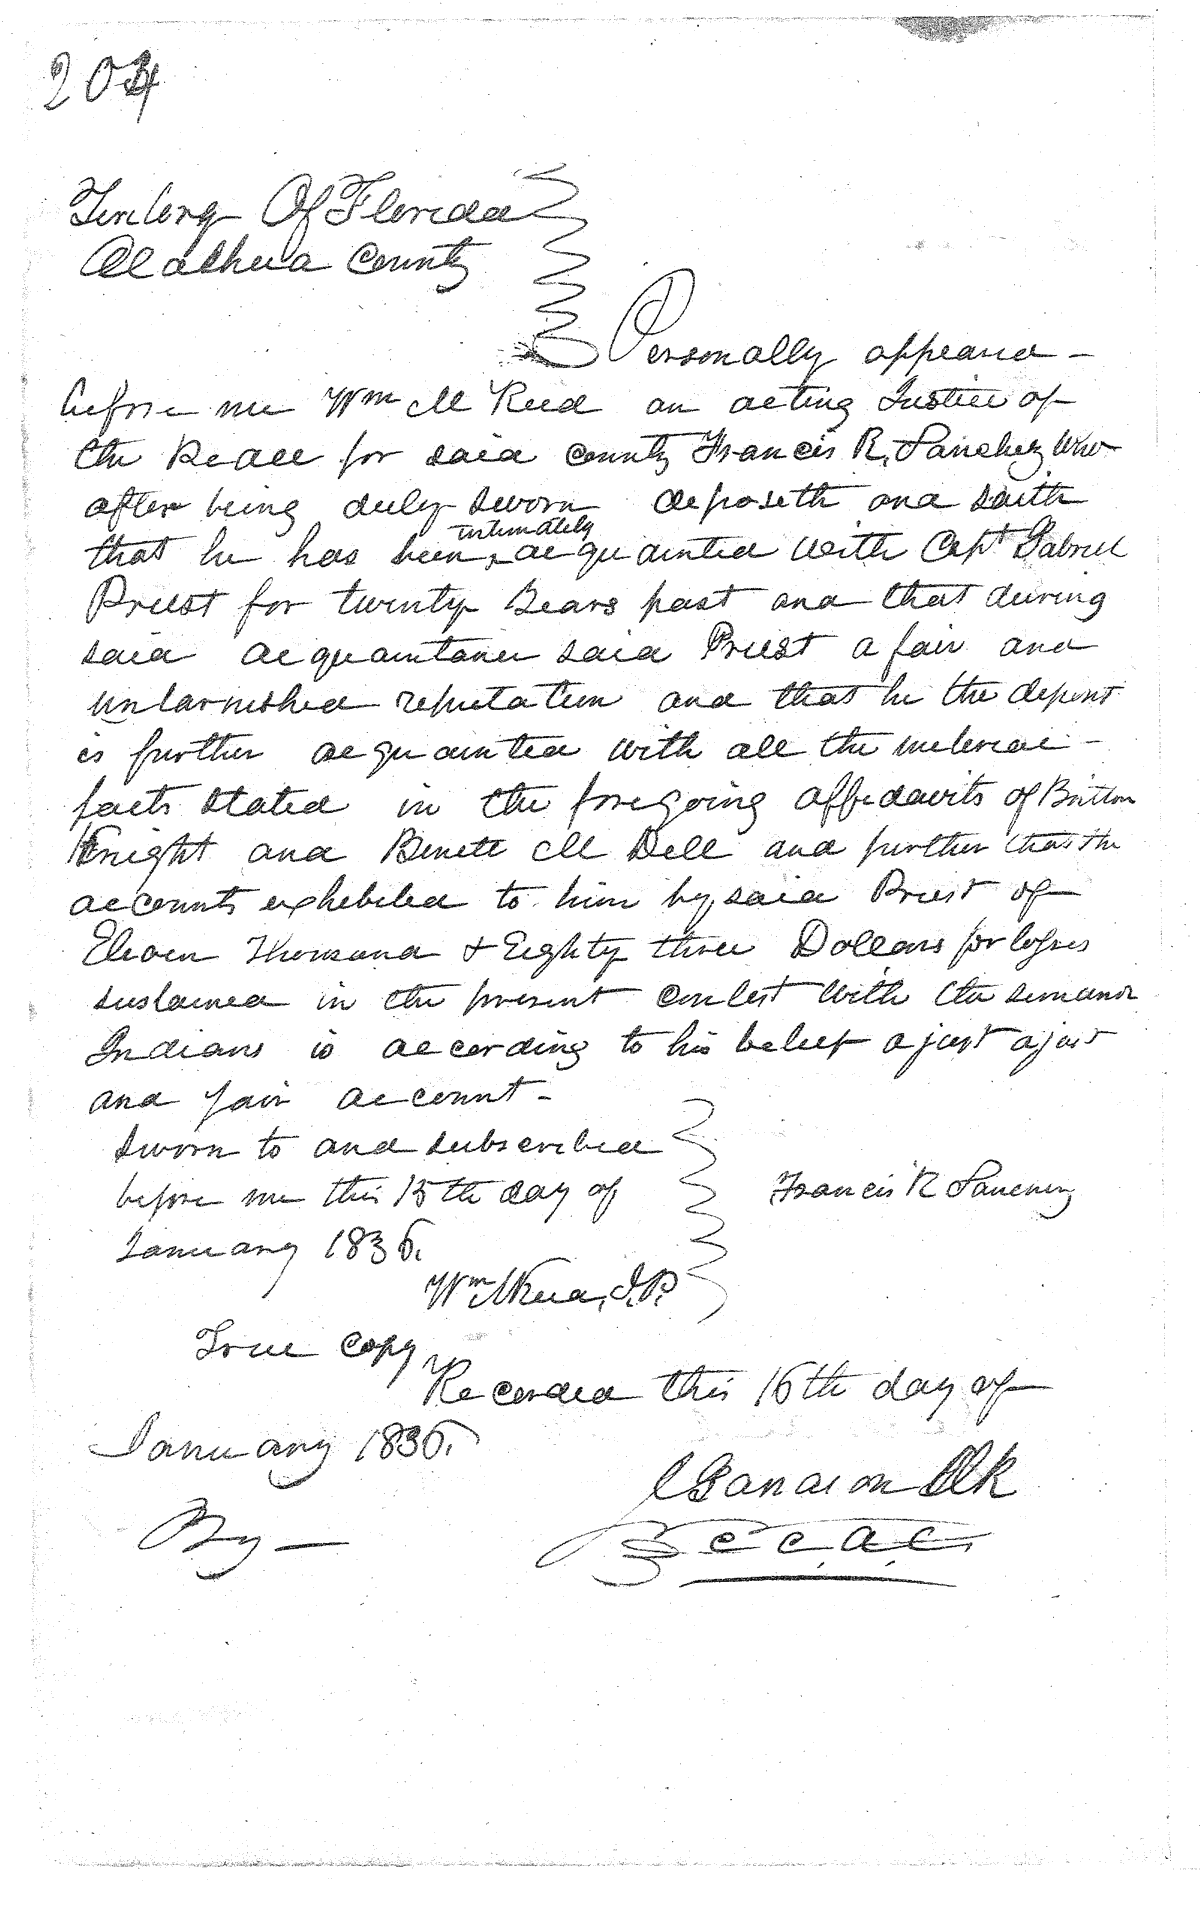 204
Territory Of Florida
Alachua County
Personally appeared
before me Wm M Reed an acting Justice of
the Peace for said County Francis R. Sanchez who
after being duly sworn deposeth and saith
that he has been intimately acquainted with Capt Gabriel
Priest for twenty Years past and that during
said acquaintance said Priest a fair and
untarnished reputation and that he the depont
is further acquainted with all the material
facts stated in the foregoing affidavits of Britton
Knight and Benett M Dell and further that the
accounts exhibited to him by said Priest of
Eleven Thousand & Eighty three Dollars for losses
sustained in the present contest with the
Indians is according to his belief a just a just
and fair account -
Sworn to and subscribed
before me this 15th day of
January 1836.
Francis R Sanchez
Wm M Reed, J.P.
True Copy
Recorded this 16th day of
January 1836.
Clk
By — C C A C.